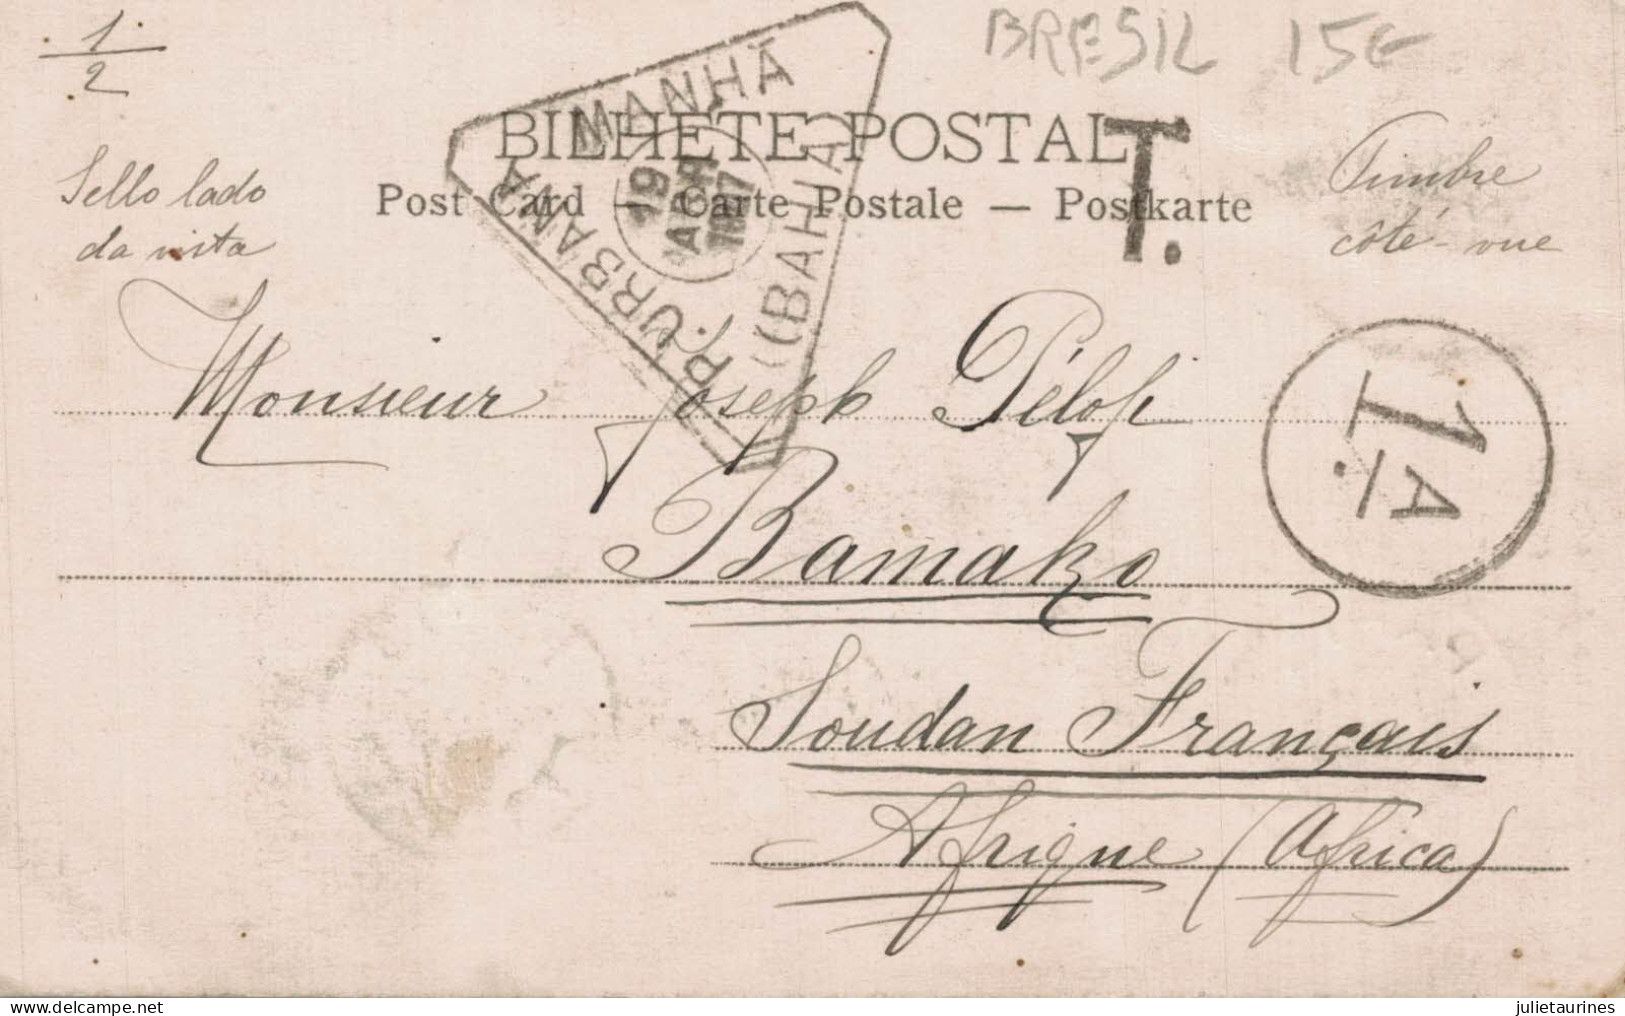 1
2
BRESIL 15€
BILHETE POSTAL
T.
Post Card — Carte Postale — Postkarte
Sello lado
da vista
Timbre
côté vue
P. URBANA 1ª MANHÃ
(BAHIA)
19
ABR
1907
Monsieur Joseph Pélofi
1A
Bamako
Soudan Français
Afrique (Africa)
delcampe.net
julietaurines